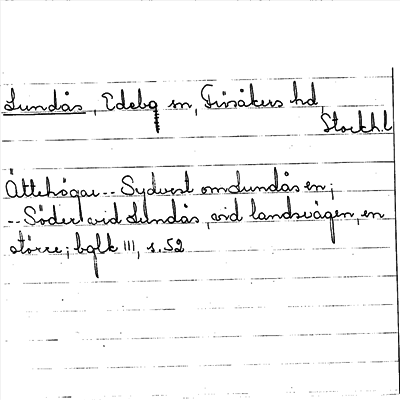 Sundås, Edebo sn, Frösåkers hd,
Stockh.l
Ättehögar -- Sydvest om Sundås en;
-- Söder vid Sundås, vid landsvägen, en
större; bglk III, s. 52